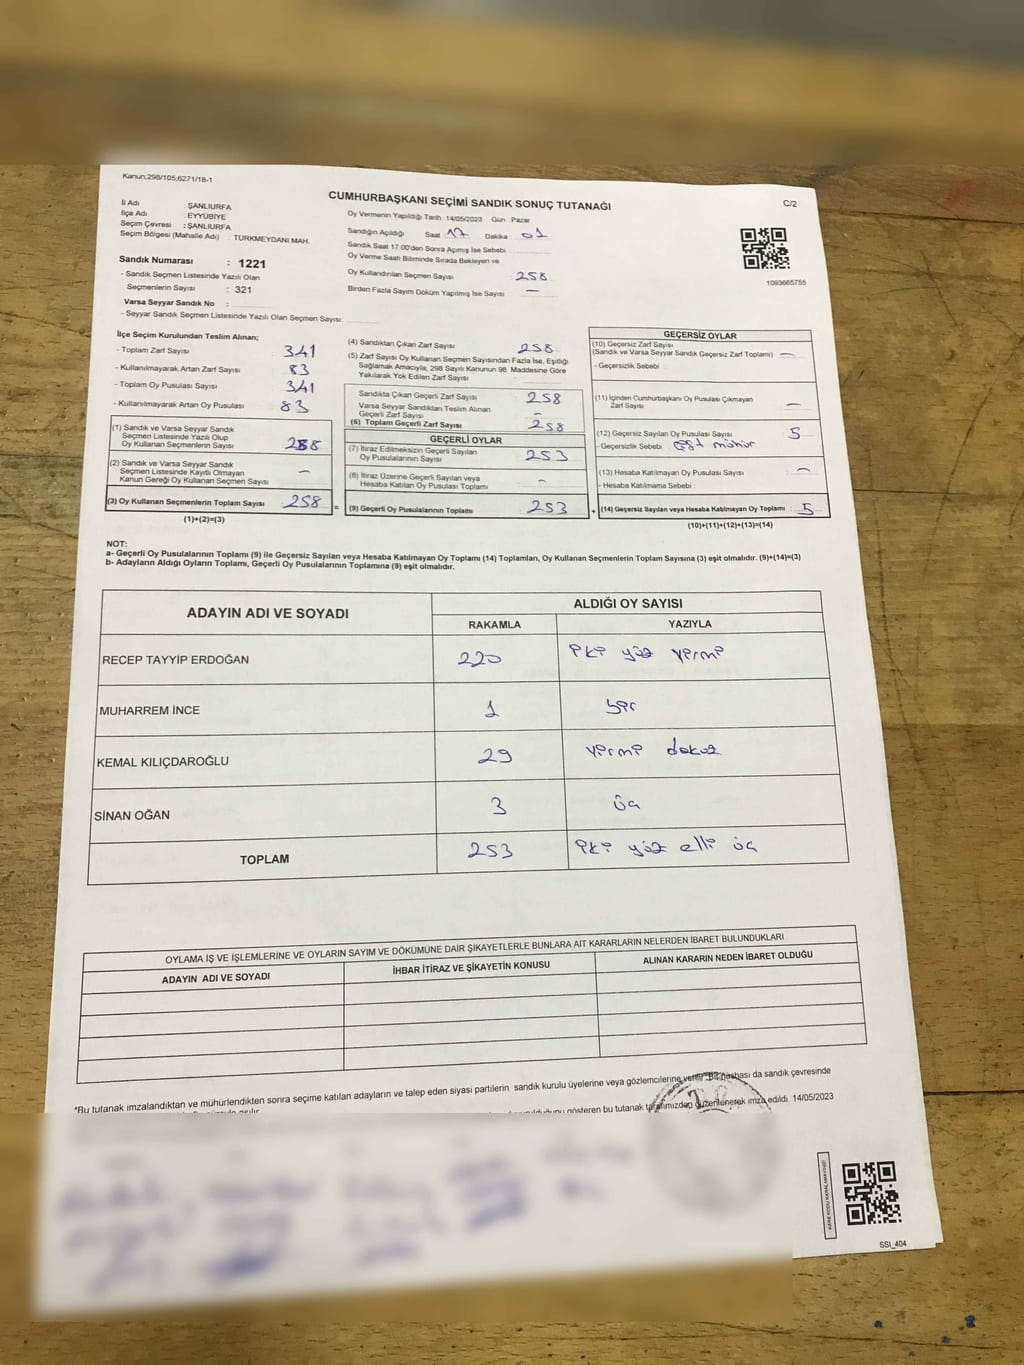 Kanun:298/105,6271/18-1
CUMHURBAŞKANI SEÇİMİ SANDIK SONUÇ TUTANAĞI
C/2
İl Adı : ŞANLIURFA
İlçe Adı : EYYÜBİYE
Seçim Çevresi : ŞANLIURFA
Seçim Bölgesi (Mahalle Adı) : TÜRKMEYDANI MAH.
Sandık Numarası : 1221
- Sandık Seçmen Listesinde Yazılı Olan
Seçmenlerin Sayısı : 321
Varsa Seyyar Sandık No :
- Seyyar Sandık Seçmen Listesinde Yazılı Olan Seçmen Sayısı:
Oy Vermenin Yapıldığı Tarih 14/05/2023 Gün Pazar
Sandığın Açıldığı Saat 17 Dakika 01
Sandık Saat 17.00'den Sonra Açılmış İse Sebebi
Oy Verme Saati Bitiminde Sırada Bekleyen ve
Oy Kullandırılan Seçmen Sayısı 258
Birden Fazla Sayım Döküm Yapılmış İse Sayısı —
1093665755
İlçe Seçim Kurulundan Teslim Alınan;
- Toplam Zarf Sayısı 341
- Kullanılmayarak Artan Zarf Sayısı 83
- Toplam Oy Pusulası Sayısı 341
- Kullanılmayarak Artan Oy Pusulası 83
(1) Sandık ve Varsa Seyyar Sandık
Seçmen Listesinde Yazılı Olup
Oy Kullanan Seçmenlerin Sayısı 258
(2) Sandık ve Varsa Seyyar Sandık
Seçmen Listesinde Kayıtlı Olmayan
Kanun Gereği Oy Kullanan Seçmen Sayısı —
(3) Oy Kullanan Seçmenlerin Toplam Sayısı 258 =
(1)+(2)=(3)
(4) Sandıktan Çıkan Zarf Sayısı 258
(5) Zarf Sayısı Oy Kullanan Seçmen Sayısından Fazla İse, Eşitliği
Sağlamak Amacıyla, 298 Sayılı Kanunun 98. Maddesine Göre
Yakılarak Yok Edilen Zarf Sayısı
Sandıkta Çıkan Geçerli Zarf Sayısı 258
Varsa Seyyar Sandıktan Teslim Alınan
Geçerli Zarf Sayısı -
(6) Toplam Geçerli Zarf Sayısı 258
GEÇERLİ OYLAR
(7) İtiraz Edilmeksizin Geçerli Sayılan
Oy Pusulalarının Sayısı 253
(8) İtiraz Üzerine Geçerli Sayılan veya
Hesaba Katılan Oy Pusulası Toplamı -
(9) Geçerli Oy Pusulalarının Toplamı 253 +
GEÇERSİZ OYLAR
(10) Geçersiz Zarf Sayısı
(Sandık ve Varsa Seyyar Sandık Geçersiz Zarf Toplamı) —
- Geçersizlik Sebebi
(11) İçinden Cumhurbaşkanı Oy Pusulası Çıkmayan
Zarf Sayısı —
(12) Geçersiz Sayılan Oy Pusulası Sayısı 5
- Geçersizlik Sebebi çift mühür
(13) Hesaba Katılmayan Oy Pusulası Sayısı —
- Hesaba Katılmama Sebebi
(14) Geçersiz Sayılan veya Hesaba Katılmayan Oy Toplamı : 5
(10)+(11)+(12)+(13)=(14)
NOT:
a- Geçerli Oy Pusulalarının Toplamı (9) ile Geçersiz Sayılan veya Hesaba Katılmayan Oy Toplamı (14) Toplamları, Oy Kullanan Seçmenlerin Toplam Sayısına (3) eşit olmalıdır. (9)+(14)=(3)
b- Adayların Aldığı Oyların Toplamı, Geçerli Oy Pusulalarının Toplamına (9) eşit olmalıdır.
ADAYIN ADI VE SOYADI ALDIĞI OY SAYISI
RAKAMLA YAZIYLA
RECEP TAYYİP ERDOĞAN 220 iki yüz yirmi
MUHARREM İNCE 1 bir
KEMAL KILIÇDAROĞLU 29 yirmi dokuz
SİNAN OĞAN 3 üç
TOPLAM 253 iki yüz elli üç
OYLAMA İŞ VE İŞLEMLERİNE VE OYLARIN SAYIM VE DÖKÜMÜNE DAİR ŞİKAYETLERLE BUNLARA AİT KARARLARIN NELERDEN İBARET BULUNDUKLARI
ADAYIN ADI VE SOYADI İHBAR İTİRAZ VE ŞİKAYETİN KONUSU ALINAN KARARIN NEDEN İBARET OLDUĞU
*Bu tutanak imzalandıktan ve mühürlendikten sonra seçime katılan adayların ve talep eden siyasi partilerin sandık kurulu üyelerine veya gözlemcilerine verilir. Bir nüshası da sandık çevresinde
gösteren bu tutanak tarafımızdan düzenlenerek imza edildi. 14/05/2023
SSI_404